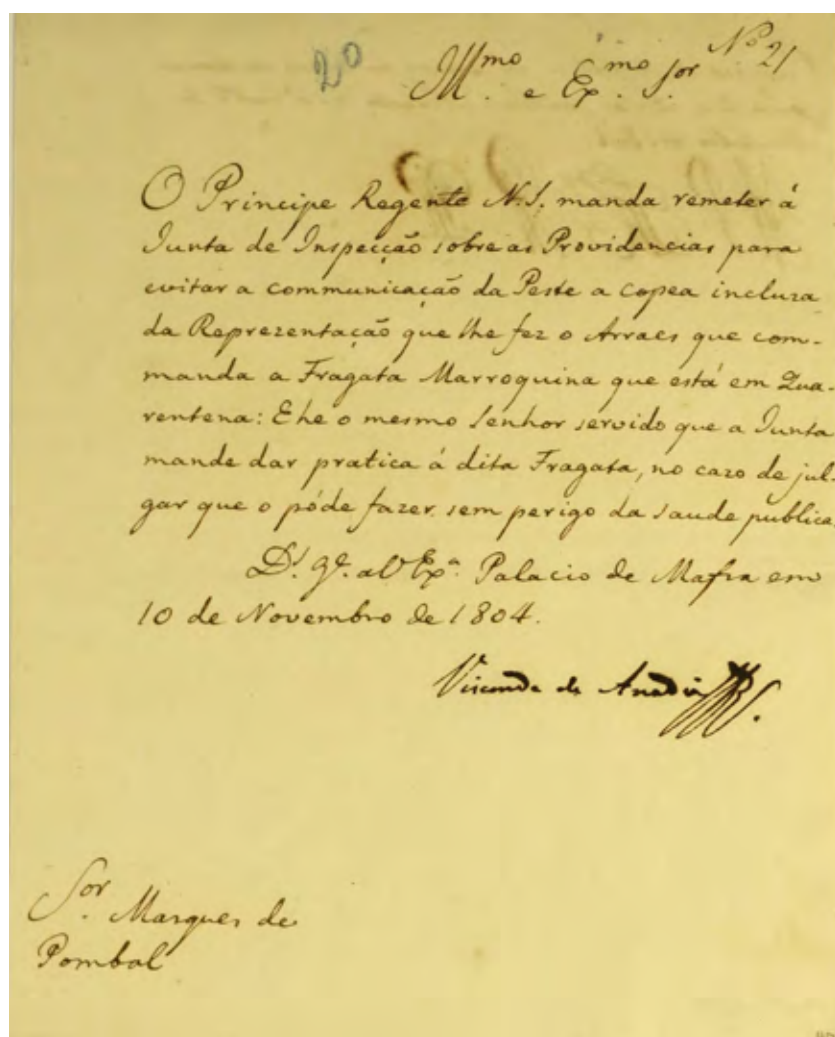 20
Nº 21
Ill.mo e Ex.mo S.or
O Principe Regente N. S. manda remeter á
Junta de Inspecção sobre as Providencias para
evitar a communicação da Peste a copea incluza
da Reprezentação que lhe fez o Arraes que com-
manda a Fragata Marroquina que está em Qua-
rentena: E he o mesmo Senhor servido que a Junta
mande dar pratica á dita Fragata, no cazo de jul-
gar que o póde fazer sem perigo da saude publica.
D.s g.e a V Ex.a Palacio de Mafra em
10 de Novembro de 1804.
Visconde de Anadia
S.or Marques de
Pombal